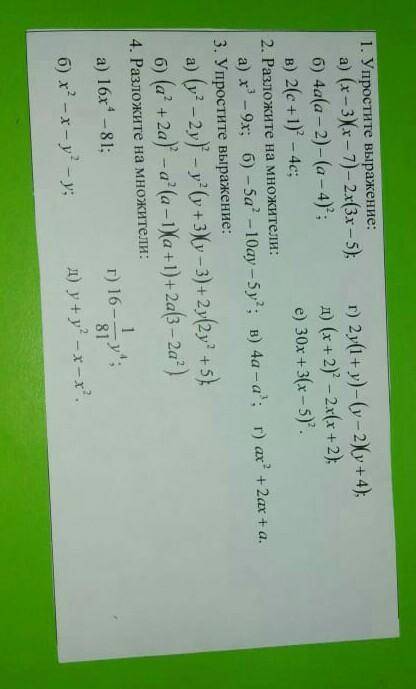 1. Упростите выражение:
а) (x−3)(x−7)−2x(3x−5);	г) 2y(1+y)−(y−2)(y+4);
б) 4a(a−2)−(a−4)²;	д) (x+2)²−2x(x+2);
в) 2(c+1)²−4c;	е) 30x+3(x−5)².
2. Разложите на множители:
а) x³−9x; б) −5a²−10ay−5y²; в) 4a−a³; г) ax²+2ax+a.
3. Упростите выражение:
а) (y²−2y)²−y²(y+3)(y−3)+2y(2y²+5);
б) (a²+2a)²−a²(a−1)(a+1)+2a(3−2a²)
4. Разложите на множители:
а) 16x⁴−81;	г) 16−1/81y⁴;
б) x²−x−y²−y;	д) y+y²−x−x².